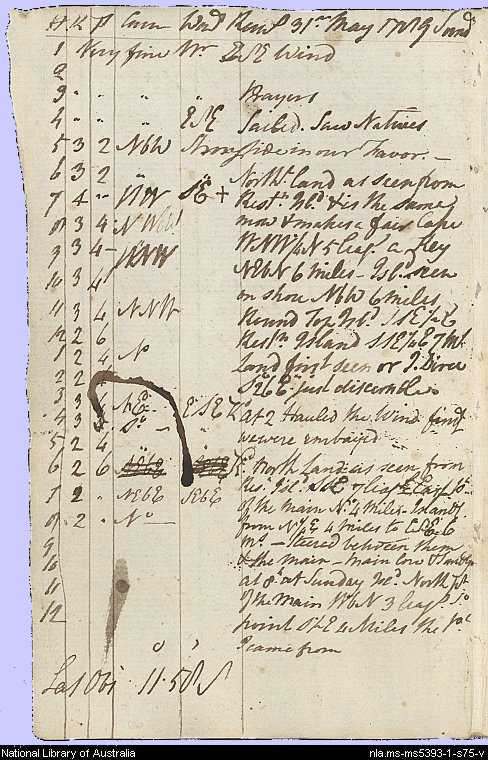 H K F Course Wind Rem.s 31st May 1789 Sund
1 Very fine Wr. ESE Wind
2
3 " " " Prayers
4 " " " ESE Sailed. Saw Natives
5 3 2 NbW Strong tide in our Favor. —
6 3 2 " North.t land as seen from
7 4 " NW SE + Rest.n Is.d & is the same
8 3 4 NWbN now & makes a fair Cape
9 3 4 NNW WNW¼N 5 leag.s a Key
10 3 4 NEbN 6 miles — Isl.d seen
on shore NbW 6 miles
11 3 4 NNW Round Top Isl.d SSE½E
12 2 6 Rest.n Island SSE½E 7 Mls
1 2 4 No Land first seen or
2 2 SEbE just discernable
3 3 4 NE ESE At 2 hauled the Wind find.g
4 3 S.o — " we were embayed —
5 2 4
6 2 6 North Land as seen from
Res.n Isl.d SbE 7 leag.s East p.t
7 2 " NEbE SEbE of the Main N.o 4 Miles. Islands
8 2 " N.o — from N¼E 4 miles to ESE 6
9 m.s — Steered between them
10 & the Main — Main Cov.d
at 8. at Sunday Is.d North p.t
11 of the Main WbN 3 leag.s S.o
12 point SbE 4 Miles the
I came from
Lat Obs. 11.58 S
National Library of Australia nla.ms-ms5393-1-s75-v